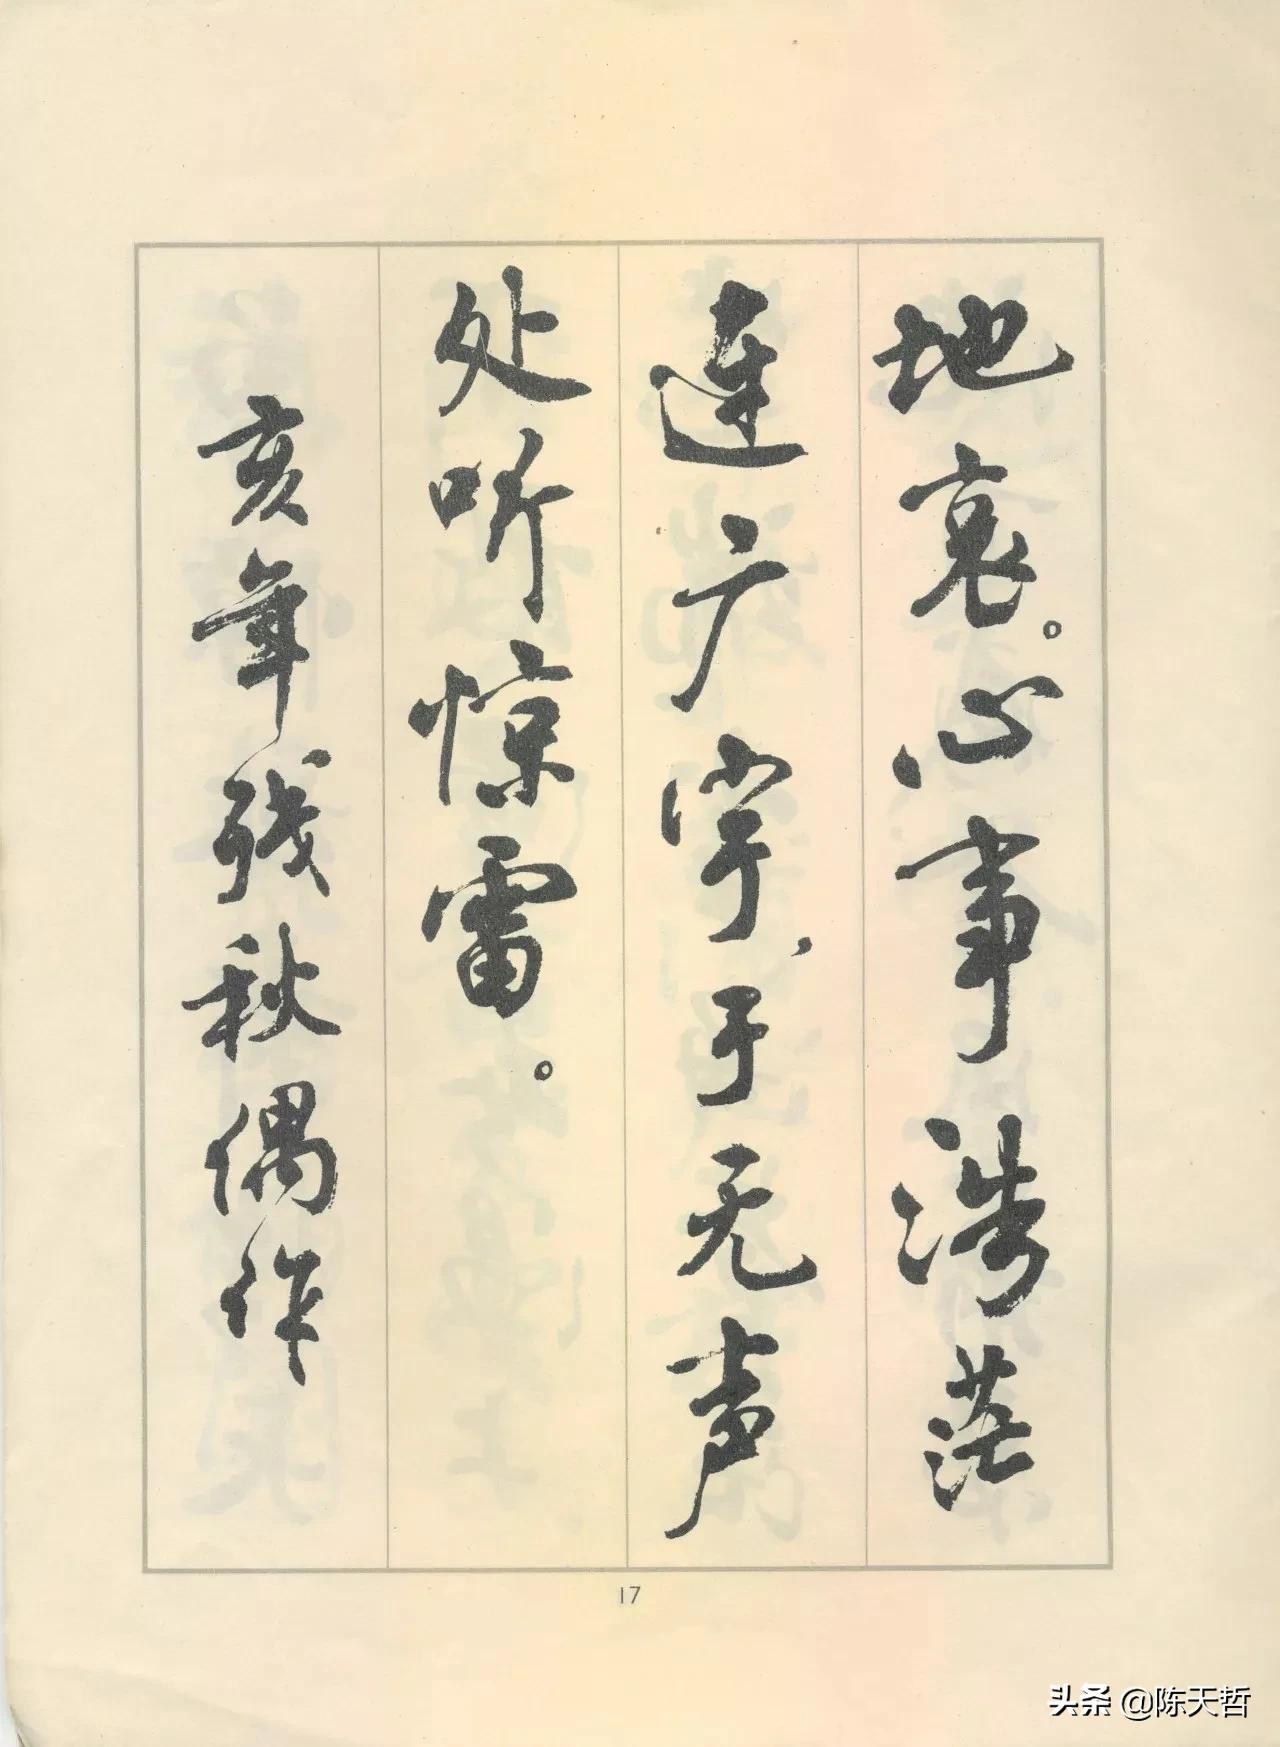 地哀。心事浩茫
连广宇，于无声
处听惊雷。
亥年残秋偶作
17
头条 @陈天哲